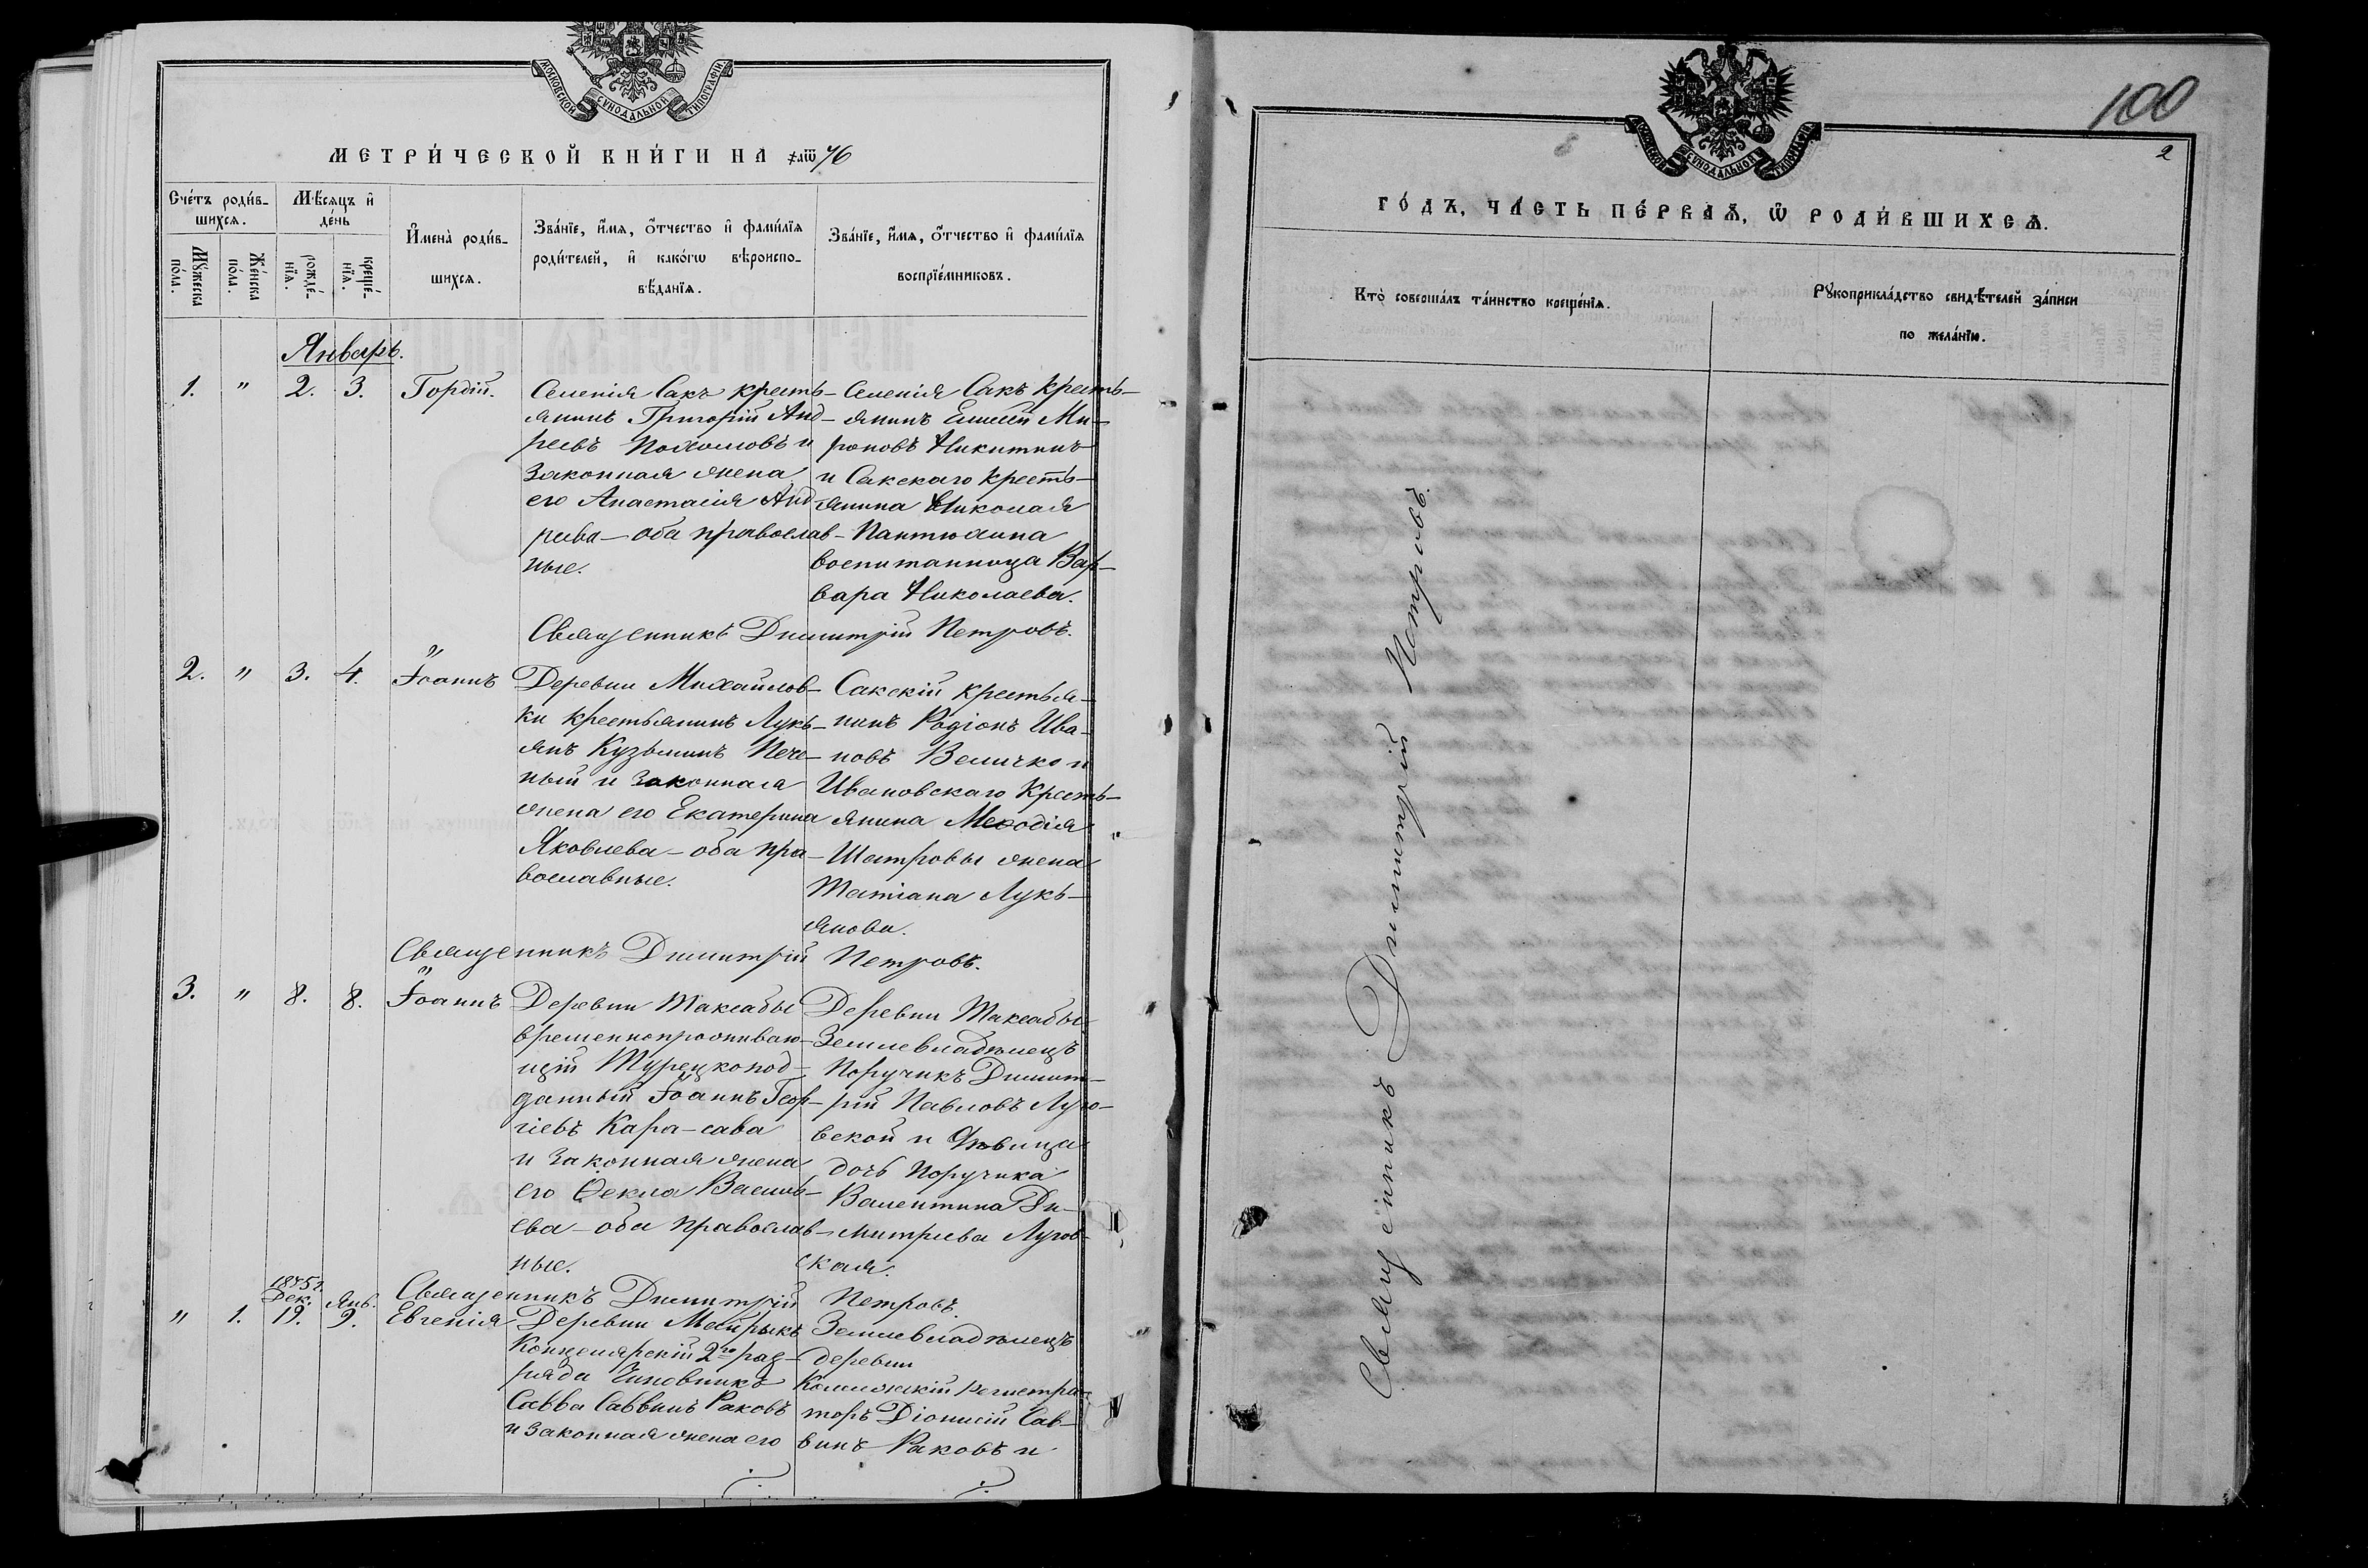 МОСКОВСКОЙ СѴНОДАЛЬНОЙ ТИПОГРАФІИ
МЕТРИ́ЧЕСКОЙ КНИ́ГИ НА ҂аѿ 76
Сче́тъ роди́в-
шихсѧ.
Мꙋ́жеска
по́ла.
Же́нска
по́ла.
Мѣ́сѧцъ и҆
де́нь
рожде́-
нїѧ.
креще́-
нїѧ.
И҆мена̀ роди́в-
шихсѧ.
Зва́нїе, и҆́мѧ, ѻ҆́тчество и҆ фами́лїѧ
роди́телей, и҆ како́гѡ вѣроиспо-
вѣ́данїѧ.
Зва́нїе, и҆́мѧ, ѻ҆́тчество и҆ фами́лїѧ
воспрїе́мниковъ.
Январь.
1. " 2. 3. Гордій.
Селенія Сакъ кресть-
янинъ Григорій Анд-
реевъ Пахомовъ и
законная жена
его Анастасія Анд-
реева - оба православ-
ные.
Селенія Сакъ кресть-
янинъ Елисей Ми-
роновъ Никитинъ
и Сакскаго кресть-
янина Николая
Пантюхина
воспитанница Вар-
вара Николаева.
Священникъ Димитрій Петровъ.
2. " 3. 4. Іоаннъ
Деревни Михайлов-
ки крестьянинъ Лукь-
янъ Кузьминъ Пече-
ный и законная
жена его Екатерина
Яковлева - оба пра-
вославные.
Сакскій крестья-
нинъ Родіонъ Ива-
новъ Величко и
Ивановскаго кресть-
янина Меѳодія
Шатровы жена
Татіана Лукь-
янова.
Священникъ Димитрій Петровъ.
3. " 8. 8. Іоаннъ
Деревни Таксабы
временнопроживаю-
щій Турецкопод-
данный Іоаннъ Геор-
гіевъ Кара-сава
и законная жена
его Ѳекла Василь-
ева - оба православ-
ные.
Деревни Таксабы
Землевладѣлецъ
Поручикъ Димит-
рій Павловъ Луго-
вской и дѣвица
дочь Поручика
Валентина Ди-
митріева Лугов-
ская.
Священникъ Димитрій Петровъ.
" 1. 1875 г. Дек. 19. Янв. 9. Евгенія
Деревни Мейрыкъ
Канцелярскій 2го раз-
ряда Чиновникъ
Савва Саввинъ Раковъ
и законная жена его
Землевладѣлецъ
деревни
Коллежскій Регистра-
торъ Діонисій Сав-
винъ Раковъ и
100
2
МОСКОВСКОЙ СѴНОДАЛЬНОЙ ТИПОГРАФІИ
ГО́ДЪ, ЧА́СТЬ ПЕ́РВАѦ, Ѡ҆ РОДИ́ВШИХСѦ.
Кто̀ соверша́лъ та́инство креще́нїѧ.
Рꙋкоприкла́дство свидѣ́телей за́писи
по жела́нїю.
Священникъ Димитрій Петровъ.